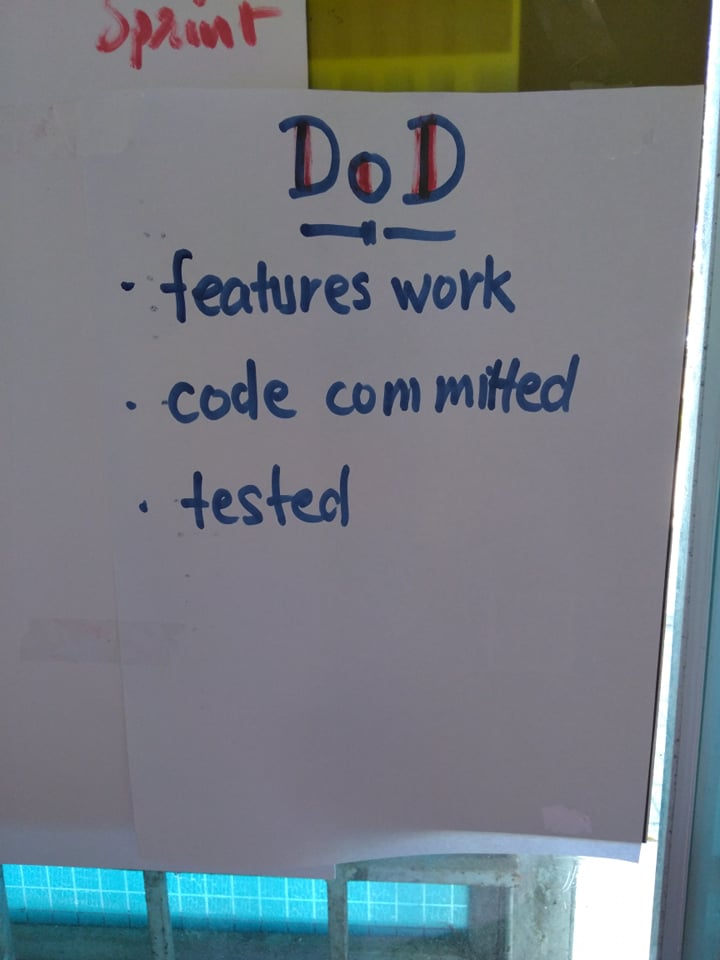 Sprint
DoD
· features work
· code committed
· tested